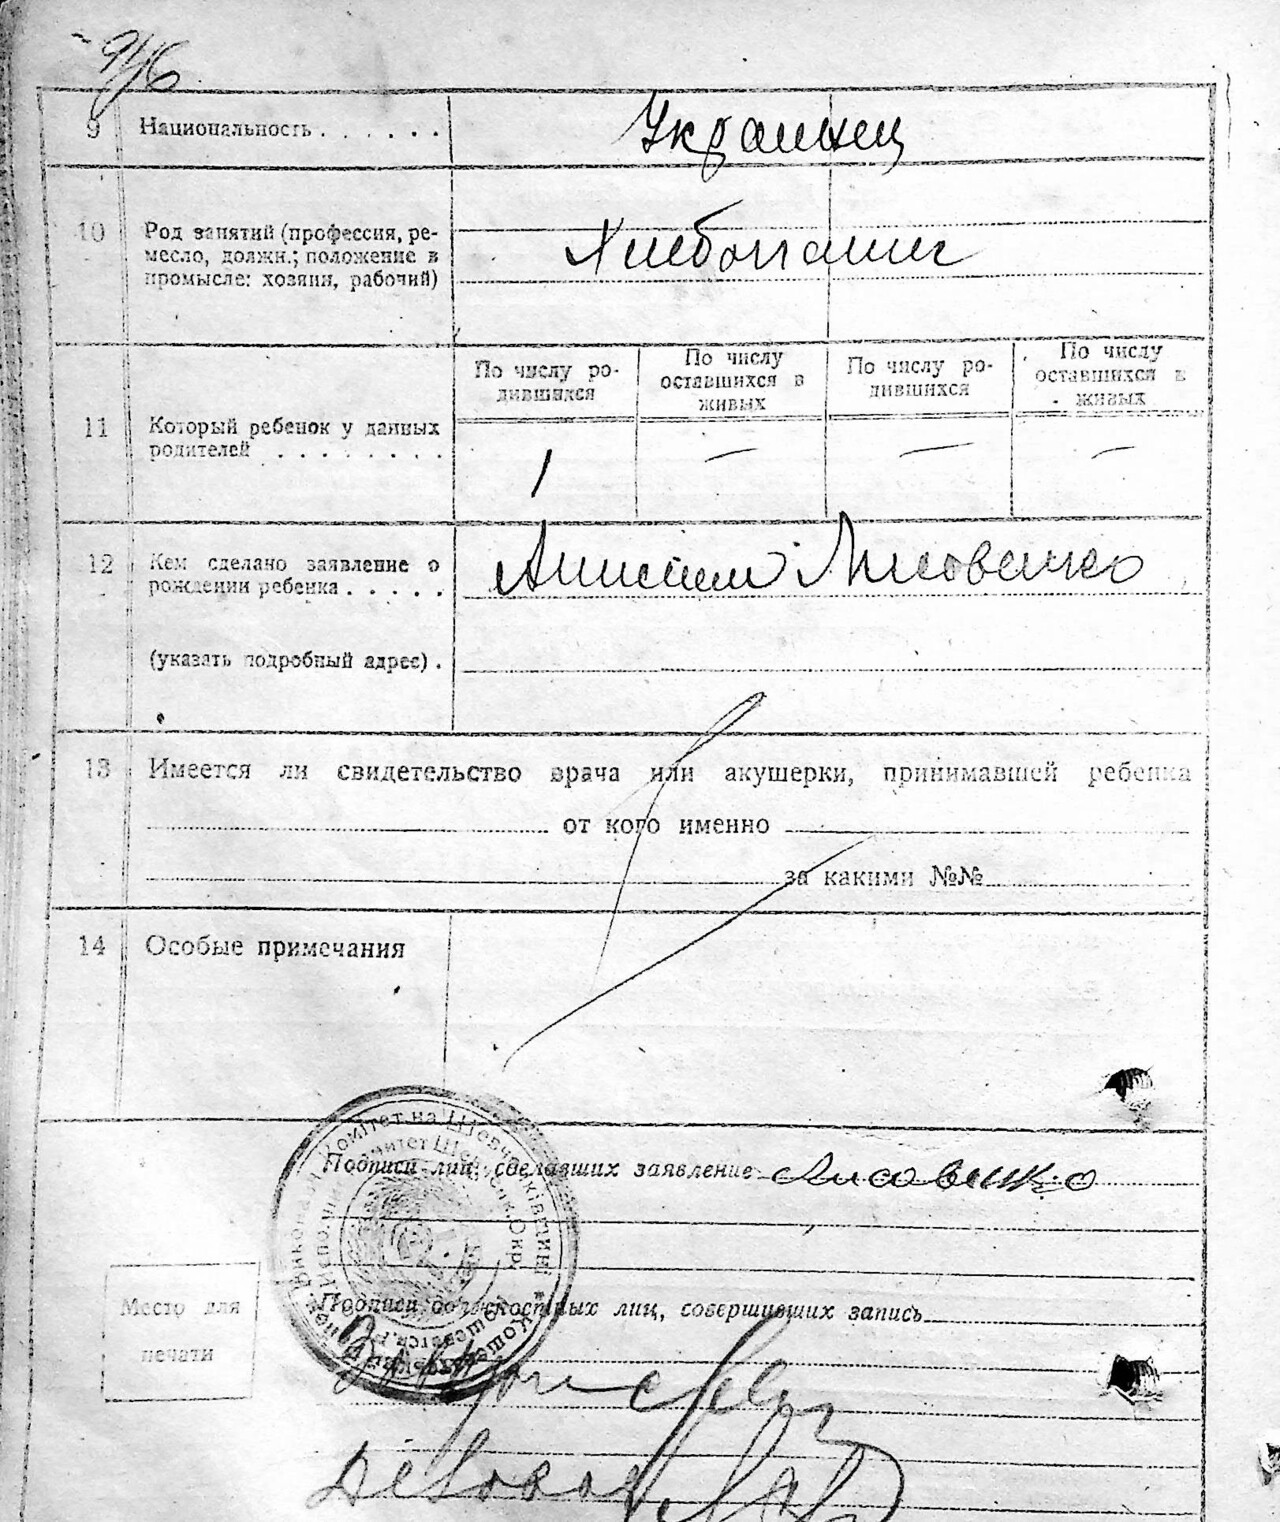 9 Национальность . . . . . .
Украинец
10 Род занятий (профессия, ре-
месло, должн.; положение в
промысле: хозяин, рабочий)
Хлебопашец
По числу ро-
дившихся
По числу
оставшихся в
живых
По числу ро-
дившихся
По числу
оставшихся в
живых
11 Который ребенок у данных
родителей . . . . . . . .
1 — — —
12 Кем сделано заявление о
рождении ребенка . . . . .
Лисовенко
(указать подробный адрес) .
13 Имеется ли свидетельство врача или акушерки, принимавшей ребенка
от кого именно
за какими №№
14 Особые примечания
Подписи лиц, сделавших заявление Лисовенко
Место для
печати
Подписи должностных лиц, совершивших запись
Комітет на Шевченківщині